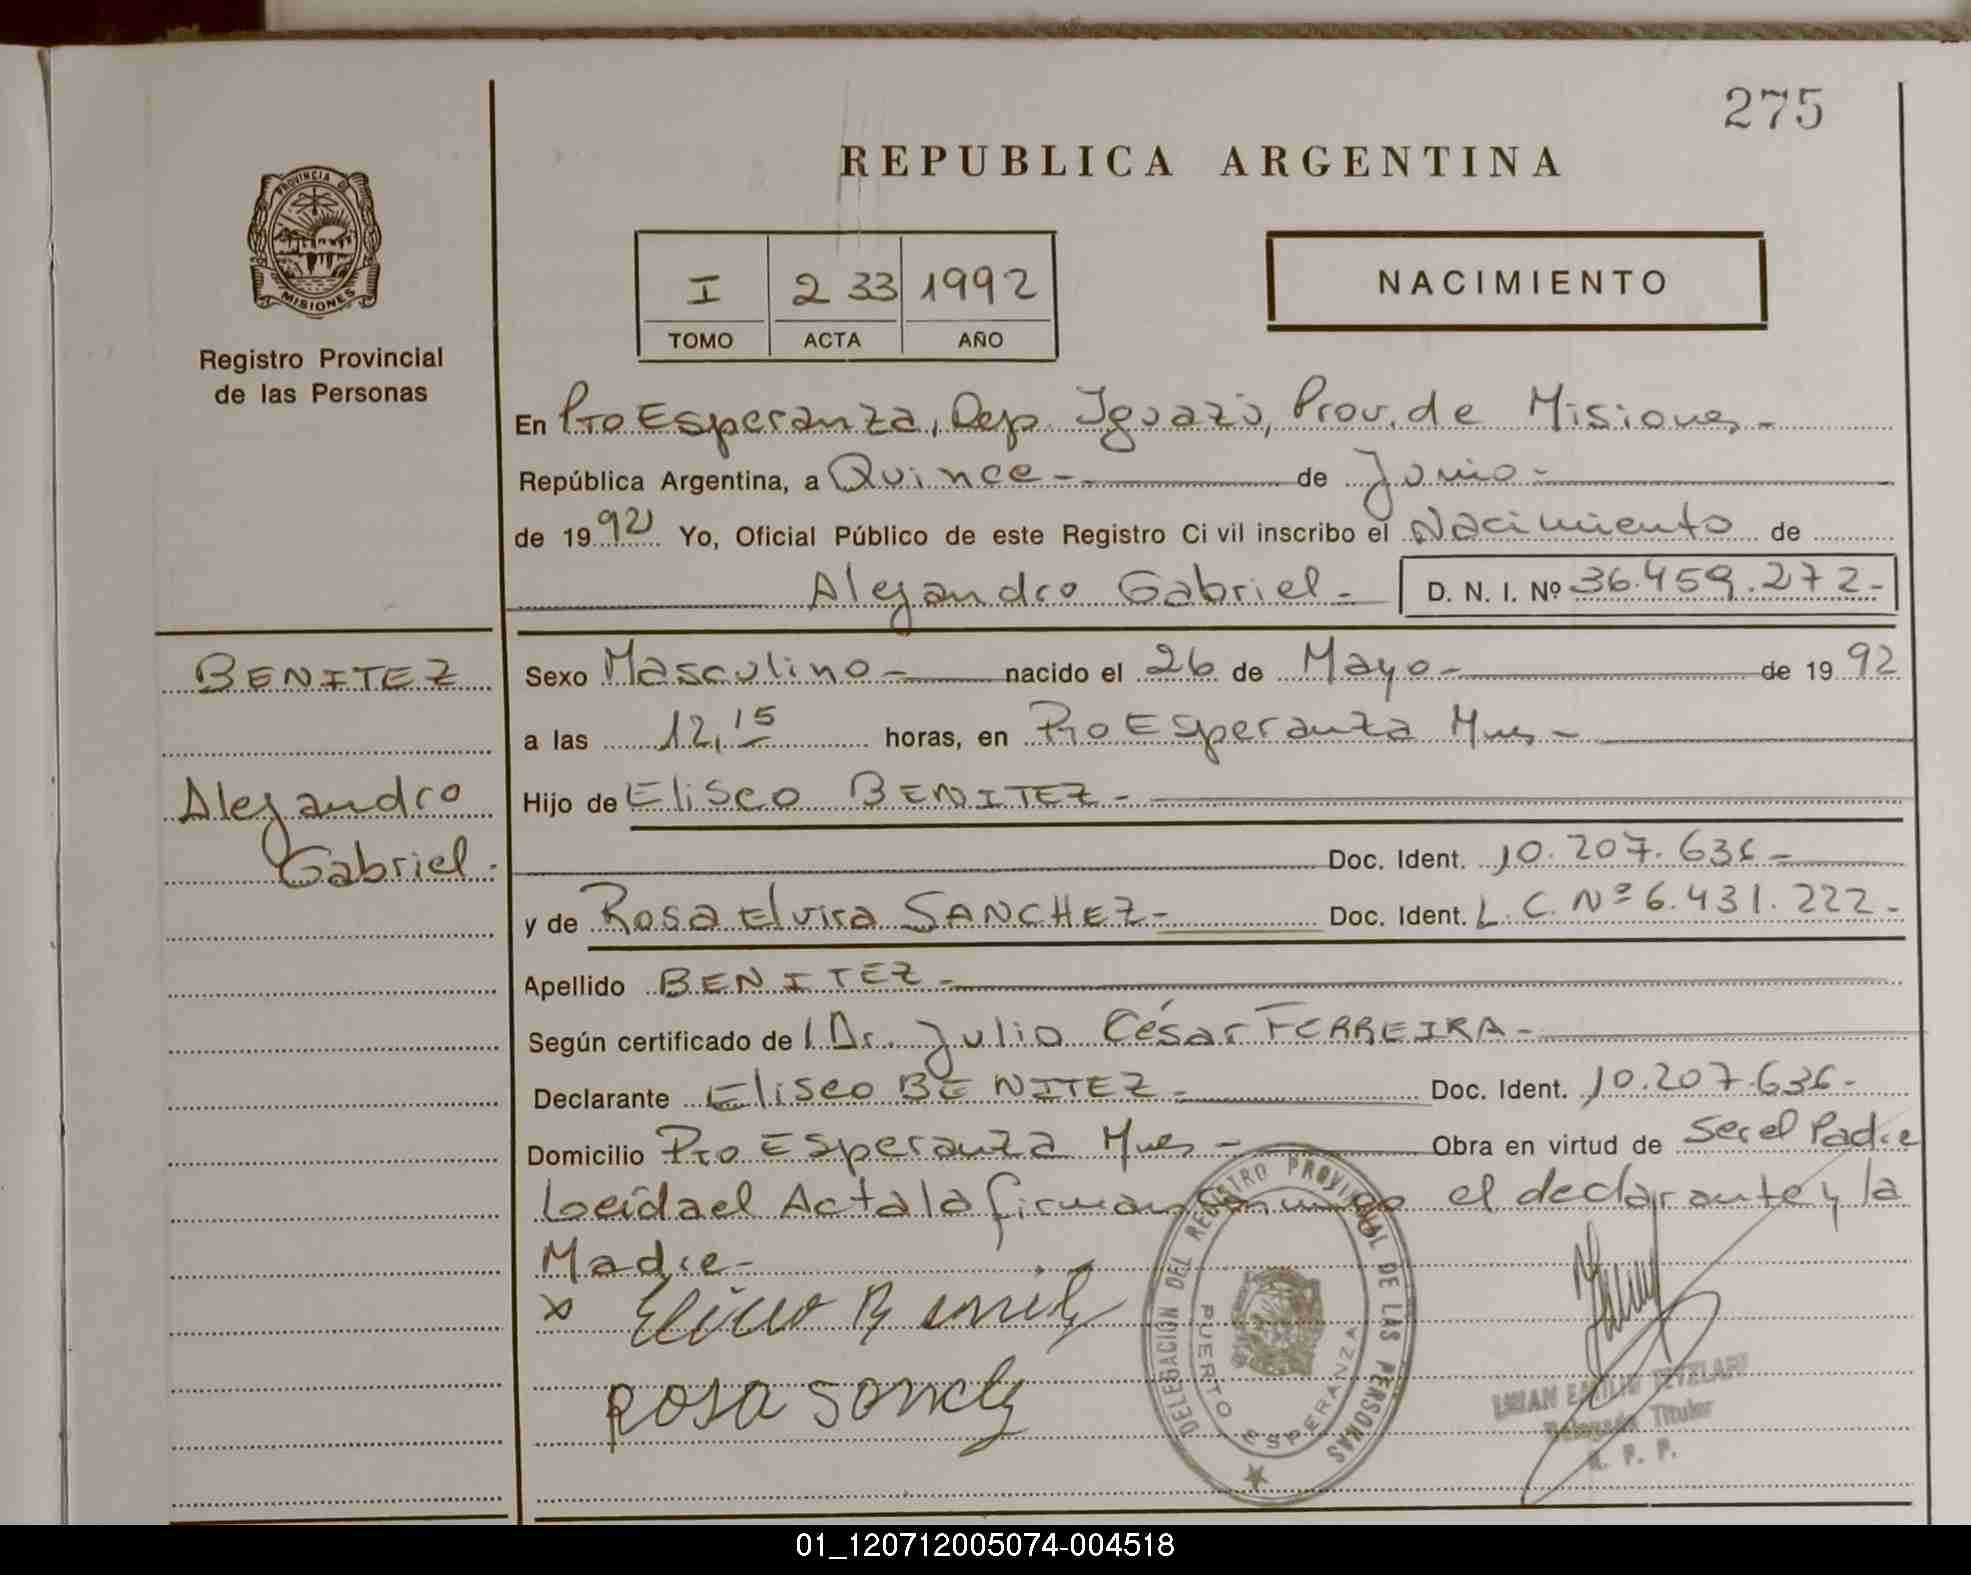 275
REPUBLICA ARGENTINA
PROVINCIA DE
MISIONES
Registro Provincial
de las Personas
I 233 1992
TOMO ACTA AÑO
NACIMIENTO
En Pto Esperanza, Dep. Iguazú, Prov. de Misiones -
República Argentina, a Quince - de Junio -
de 1992 Yo, Oficial Público de este Registro Civil inscribo el Nacimiento de
Alejandro Gabriel - D. N. I. Nº 36.459.272-
BENITEZ
Alejandro
Gabriel -
Sexo Masculino - nacido el 26 de Mayo - de 1992
a las 12,15 horas, en Pto Esperanza Mnes -
Hijo de Eliseo BENITEZ -
Doc. Ident. 10.207.636 -
y de Rosa Elvira SANCHEZ - Doc. Ident. L.C. Nº 6.431.222 -
Apellido BENITEZ -
Según certificado de l Dr. Julio César FERREIRA -
Declarante Eliseo BENITEZ - Doc. Ident. 10.207.636 -
Domicilio Pto Esperanza Mnes - Obra en virtud de Ser el Padre
Leída el Acta la firman conmigo el declarante y la
Madre -
x Eliseo Benitez
Rosa Sanchez
DELEGACION DEL REGISTRO PROVINCIAL DE LAS PERSONAS
PUERTO ESPERANZA
Delegado Titular
R. P. P.
01_120712005074-004518